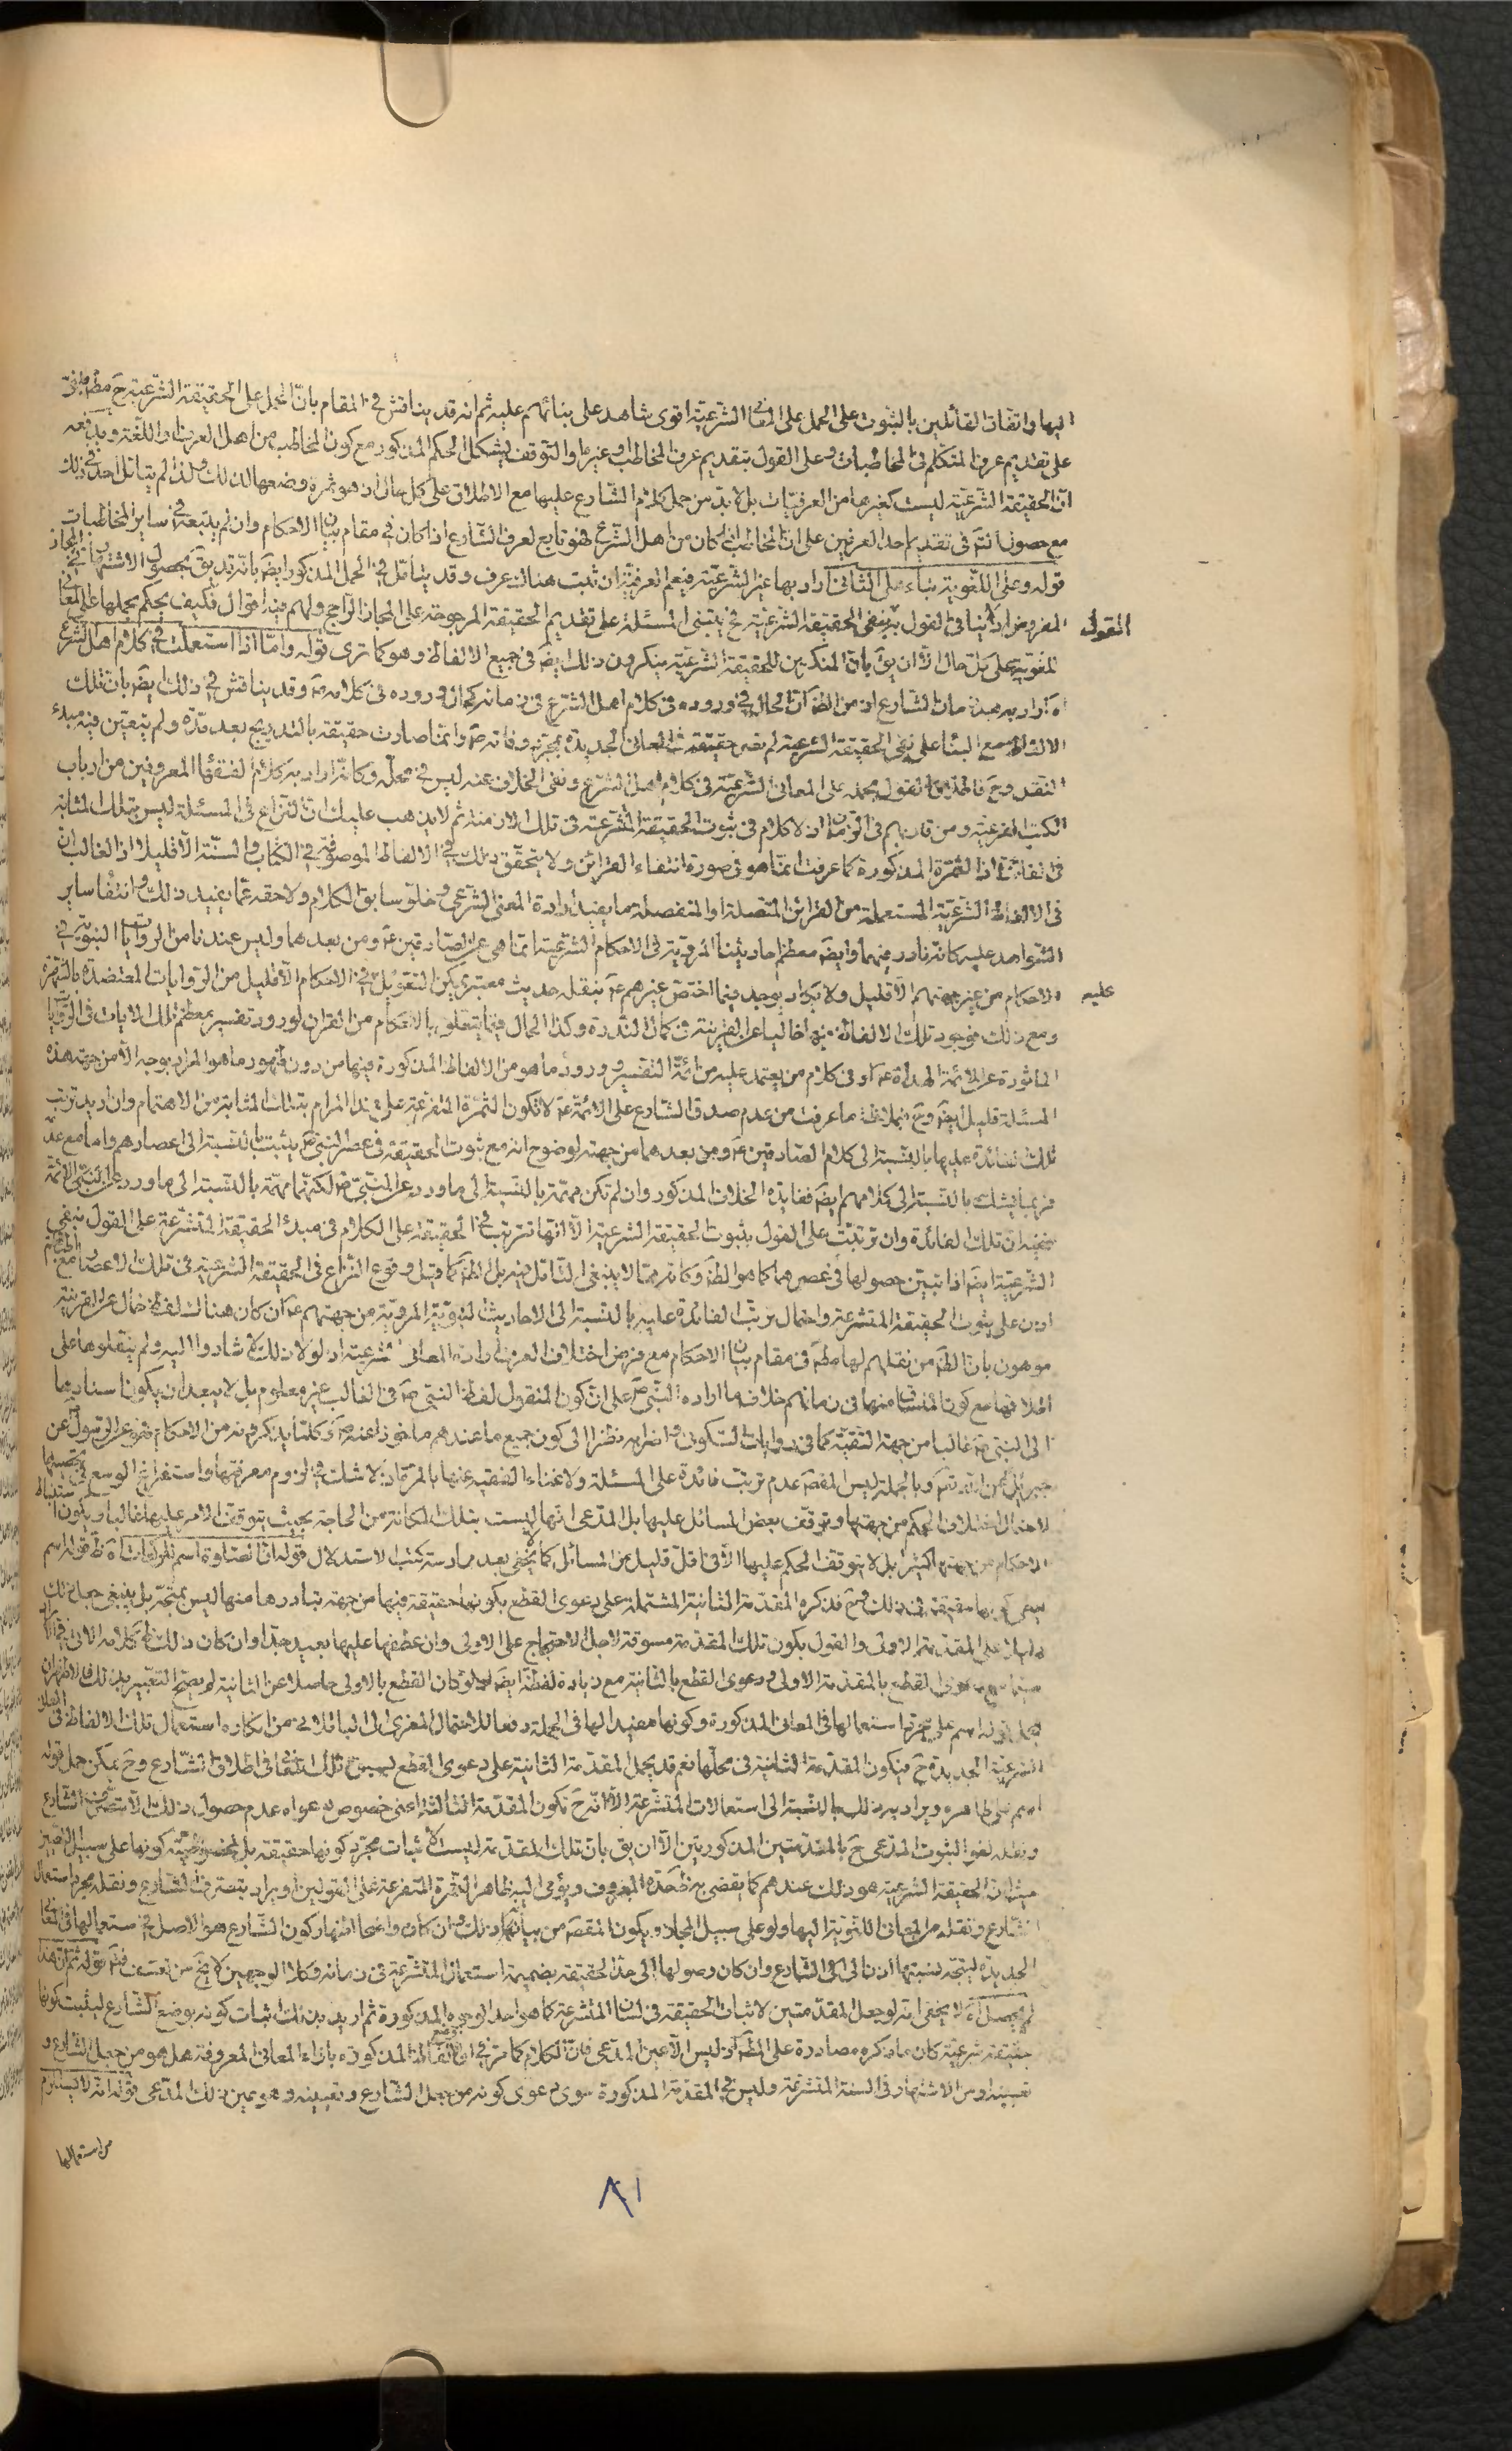 اليها واتفاق القائلين بالثبوت على الحمل على المعانى الشرعيّة اقوى شاهد على بنائهم عليه ثم انه قد يناقش فى المقام بانّ الحمل على الحقيقة الشرعية ح
على تقديم عرف المتكلم فى المخاطبات وعلى القول بتقديم عرف المخاطب او غيرها والتوقف يشكل الحكم المذكور مع كون المخاطب من اهل العرف او اللغة ويدفعه
انّ الحقيقة الشرعيّة ليست كغيرها من العرفيّات بل لا بدّ من حمل كلام الشارع عليها مع الاطلاق على كل حال اذ هو ثمرة وضعها لذلك ولذا لم يتامّل احد فى ذلك
مع حصول فى تقديم احد العرفين على انّ المخاطب اذا كان من اهل الشرع فهو تابع لعرف الشارع اذا كان فى مقام بيان الاحكام وان لم يتبعه فى ساير المخاطبات
قوله وعلى اللغوية بناء على الثانى اراد بها غير الشرعيّة فيعم العرفيّة ان ثبت هناك عرف وقد يتأمّل فى الحمل المذكور ايضَ بانّه قد يق بحصول الاشتهار فى المجاز
المفروض اذ لا ينافى القول بنفى الحقيقة الشرعيّة فح يبتنى المسئلة على تقديم الحقيقة المرجوحة على المجاز الراجح ولهم فيه اقوال فكيف يحكم بحملها على المعانى
القول
اللغوية على كل حال الّا ان يق بانّ المنكرين للحقيقة الشرعيّة ينكرون ذلك ايضَ فى جميع الالفاظ وهو كما ترى قوله وامّا اذا استعملت فى كلام اهل الشرع
اه اراد به بعد زمان الشارع اذ من الظَ انّ الحال فى وروده فى كلام اهل الشرع فى زمانه كحال وروده فى كلامه وقد يناقش فى ذلك ايضَ بان تلك
الالفاظ مع البناء على نفى الحقيقة الشرعية لم تصر حقيقة فى المعانى الجديدة بمجرّد وفاته ص وانّما صارت حقيقة بالتدريج بعد مدّة ولم يتعيّن فيه مبدء
النقل وح فاطلاق القول بحمله على المعانى الشرعيّة فى كلام اهل الشرع ونفى الخلاف عنه ليس فى محلّه وكانّه اراد به كلام الفقهاء المعروفين من ارباب
الكتب الفرعيّة ومن قاربهم فى الزمان اذ لا كلام فى ثبوت الحقيقة المتشرعيّة فى تلك الازمنة ثم لا يذهب عليك انّ النزاع فى المسئلة ليس بتلك المثابة
فى الفائدة اذ الثمرة المذكورة كما عرفت انّما هو فى صورة انتفاء القرائن ولا يتحقّق ذلك فى الالفاظ الموصوفة فى الكتاب والسنّة الّا قليلا اذ الغالب ان
فى الالفاظ الشرعيّة المستعملة من القرائن المتّصلة او المنفصلة ما يفيد ارادة المعنى الشرعى وخلوّ سابق الكلام ولاحقه عمّا يفيد ذلك وانتفاء ساير
الشواهد عليه كانّه نادر فيهما وايضَ معظم احاديثنا المرويّة فى الاحكام الشرعية انّما هى عن الصادقين ع ومن بعدهما وليس عندنا من الروايات النبوية فى
الاحكام من غير جهتهم الّا قليل ولا يكاد يوجد فيما اختصّ غيرهم ع بنقله حديث معتبر يكن التعويل فى الاحكام الّا قليل من الروايات المعتضدة بالشهرة
عليه
ومع ذلك فوجود تلك الالفاظ فيها خاليا عن القرينة فى كمال الندرة وكذا الحال فيما يتعلّق بالاحكام من القران لورود تفسير معظم تلك الايات فى الروايات
الماثورة عن الائمة الهداة ع او فى كلام من يعتمد عليه من ائمّة التفسير وورود ما هو من الالفاظ المذكورة فيها من دون ظهور ما هو المراد بوجه الّا من جهة هذه
المسئلة قليل ايضَ وح بملاحظة ما عرفت من عدم صدق الشارع على الائمّة ع لا تكون الثمرة المتفرّعة على هذا المرام بتلك المثابة من الاهتمام وان اريد ترتب
تلك الفائدة عليها بالنسبة الى كلام الصادقين ع ومن بعدهما من جهة لوضوح انه مع ثبوت الحقيقة فى عصر النبى ص يثبت بالنسبة الى اعصارهم واما مع عدمه
فربما يشك بالنسبة الى كلامهم ايضَ ففايدة الخلاف المذكور وان لم تكن مهمّة بالنسبة الى ما ورد عن النبى ص لكنّها مهمّة بالنسبة الى ما ورد عن الائمّة
ففيه ان تلك الفائدة وان ترتبت على القول بثبوت الحقيقة الشرعية الّا انّها تترتب فى الحقيقة على الكلام فى مبدء الحقيقة المتشرّعة على القول بنفى
الشرعيّة ايضَ اذا تبيّن حصولها فى عصرهما كما هو الظَ وكانّه ممّا لا ينبغى التامّل فيه بل الظَ كما قيل وقوع النزاع فى الحقيقة الشرعية فى تلك الاعصار
اذن على ثبوت الحقيقة المتشرعة واحتمال ترتّب الفائدة عليه بالنسبة الى الاحاديث النبويّة المرويّة من جهتهم ع ان كان هناك لفظ خال عن القرينة
موهون بانّ الظَ من نقلهم لها مطَ فى مقام بيان الاحكام مع فرض اختلاف العرف ارادة المعانى الشرعية اذ لولا ذلك لاشاروا اليه ولم ينقلوها على
اطلاقها مع كون المنساق منها فى زمانهم خلاف ما اراده النبى ص على انّ كون المنقول لفظ النبى ص فى الغالب غير معلوم بل لا يبعد ان يكون اسنادها
الى النبى ص غالبا من جهة التقيّة كما فى روايات السكونى واضرابه نظرا الى كون جميع ما عندهم ماخوذا عنه ص وكلّما يذكرونه من الاحكام فهو عن الرسول عن
جبرئيل عن اللّه تعَ وبالجملة ليس المقصَ عدم ترتّب فائدة على المسئلة ولا غناء الفقيه عنها بالمرّة اذ لا شك فى لزوم معرفتها واستفراغ الوسع فى تحصيلها
لاحتمال اختلاف الحكم من جهتها وتوقّف بعض المسائل عليها بل المدّعى انّها ليست بتلك المكانة من الحاجة بحيث يتوقّف الامر عليها غالبا ويكون استنباط
الاحكام من جهتها اكثر بل لا يتوقف الحكم عليها الّا فى اقلّ قليل من المسائل كما لا يخفى بعد ممارسة كتب الاستدلال قوله انّ الصلوة اسم للركعات اه
فما ذكره المقدّمة الثانية المشتملة على دعوى القطع بكونها حقيقة فيها من جهة تبادرها منها ليس بمتّجه بل ينبغى جعل ذلك
دليلا على المقدّمة الاولى والقول بكون تلك المقدّمة مسوقة لاجل الاحتجاج على الاولى وان عطفها عليها بعيد جدّا وان كان ذلك
دعوى القطع بالمقدّمة الاولى ودعوى القطع بالثانية مع زيادة لفظة ايضَ ولو كان القطع بالاولى حاصلا عن الثانية لم يصحّ التعبير بذلك فالاظهر ان
يحمل قوله اسم على مجرّد استعمالها فى المعانى المذكورة وكونها مفيدا لها فى الجملة دفعا للاحتمال المعزى الى الباقلانى من انكاره استعمال تلك الالفاظ فى المعانى
الشرعيّة الجديدة ح فيكون المقدّمة الثانية فى محلّها نعم قد يحمل المقدّمة الثانية على دعوى القطع بسبق تلك المعانى فى اطلاق الشارع وح يمكن حمل قوله
اسم على ظاهره ويراد به ذلك بالنسبة الى استعمالات المتشرّعة الّا انّه ح تكون المقدّمة الثالثة اعنى خصوص دعواه عدم حصول ذلك الّا بتصرّف الشارع
ونقله لغوا لثبوت المدّعى ح بالمقدّمتين المذكورتين الّا ان يق بانّ تلك المقدّمة ليست لاثبات مجرّد كونها حقيقة بل لخصوص كونها على سبيل التعيين
فيثبات الحقيقة الشرعية هو ذلك عندهم كما يقضى به ظَ حدّه المعروف ويؤمى اليه ظاهر الثمرة المتفرعة على القولين او يراد بتصرّف الشارع ونقله مجرد استعمال
الشارع ونقله من المعانى اللغويّة اليها ولو على سبيل المجاز ويكون المقصَ من بيان ذلك وان كان واضحا اظهار كون الشارع هو الاصل فى استعمالها فى المعانى
الجديدة ليتجه نسبتها اذن الى الشارع وان كان وصولها الى حدّ الحقيقة بضميمة استعمال المتشرعة فى زمانه وكلا الوجهين لا يخ من تعسف قوله ثم ان هذا
لم يحصل اه لا يخفى انه لو جعل المقدّمتين لاثبات الحقيقة فى لسان المتشرعة كما هو احد الوجوه المذكورة ثم اريد بذلك اثبات كونه بوضع الشارع ليثبت كونها
حقيقة شرعيّة كان ما ذكره مصادرة على المطَ اذ ليس الّا عين المدّعى فانّ الكلام كما مرّ فى ان وضع الالفاظ المذكورة بازاء المعانى المعروفة هل هو من جعل الشارع و
تعيينه او من الاشتهار فى السنة المتشرعة وليس فى المقدّمة المذكورة سوى دعوى كونه من جعل الشارع وتعيينه وهو عين ذلك المدّعى قوله انّه لا يستلزم
من استعمالها
٨١